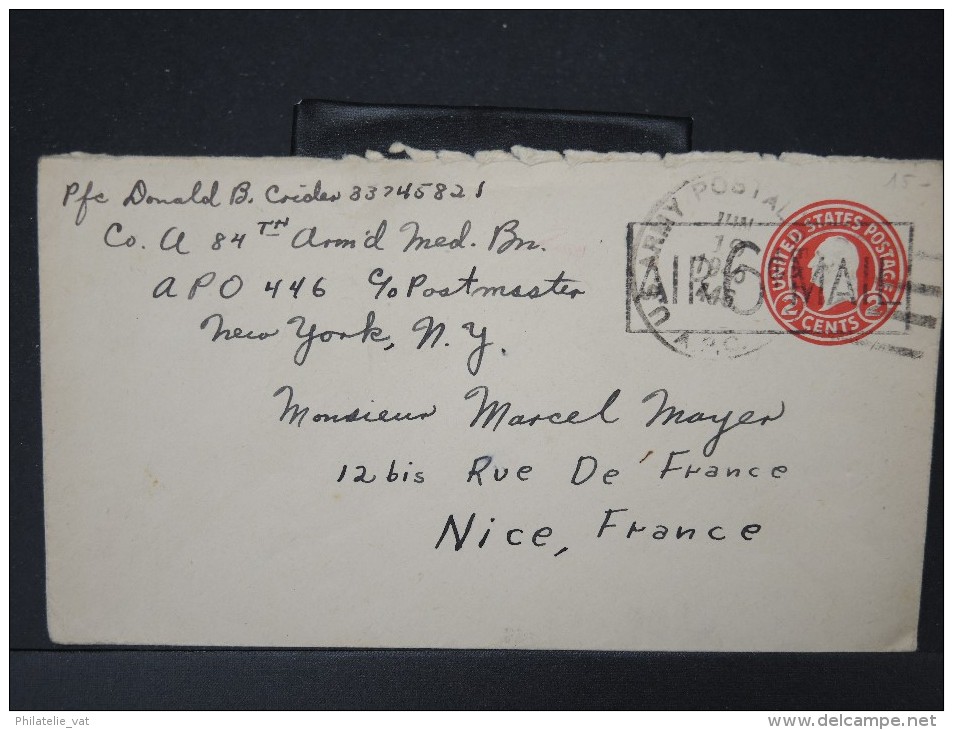 Pfc Donald B. Crider 33745821
Co. A 84TH Arm'd Med. Bn.
APO 446 C/o Postmaster
New York, N.Y.
Monsieur Marcel Mayer
12 bis Rue De France
Nice, France
U.S. ARMY POSTAL
JUN
1945
A.P.O.
AIR 6 MAIL
UNITED STATES POSTAGE
2 CENTS 2
15-
Philatelie_vat
http://www.delcampe.net